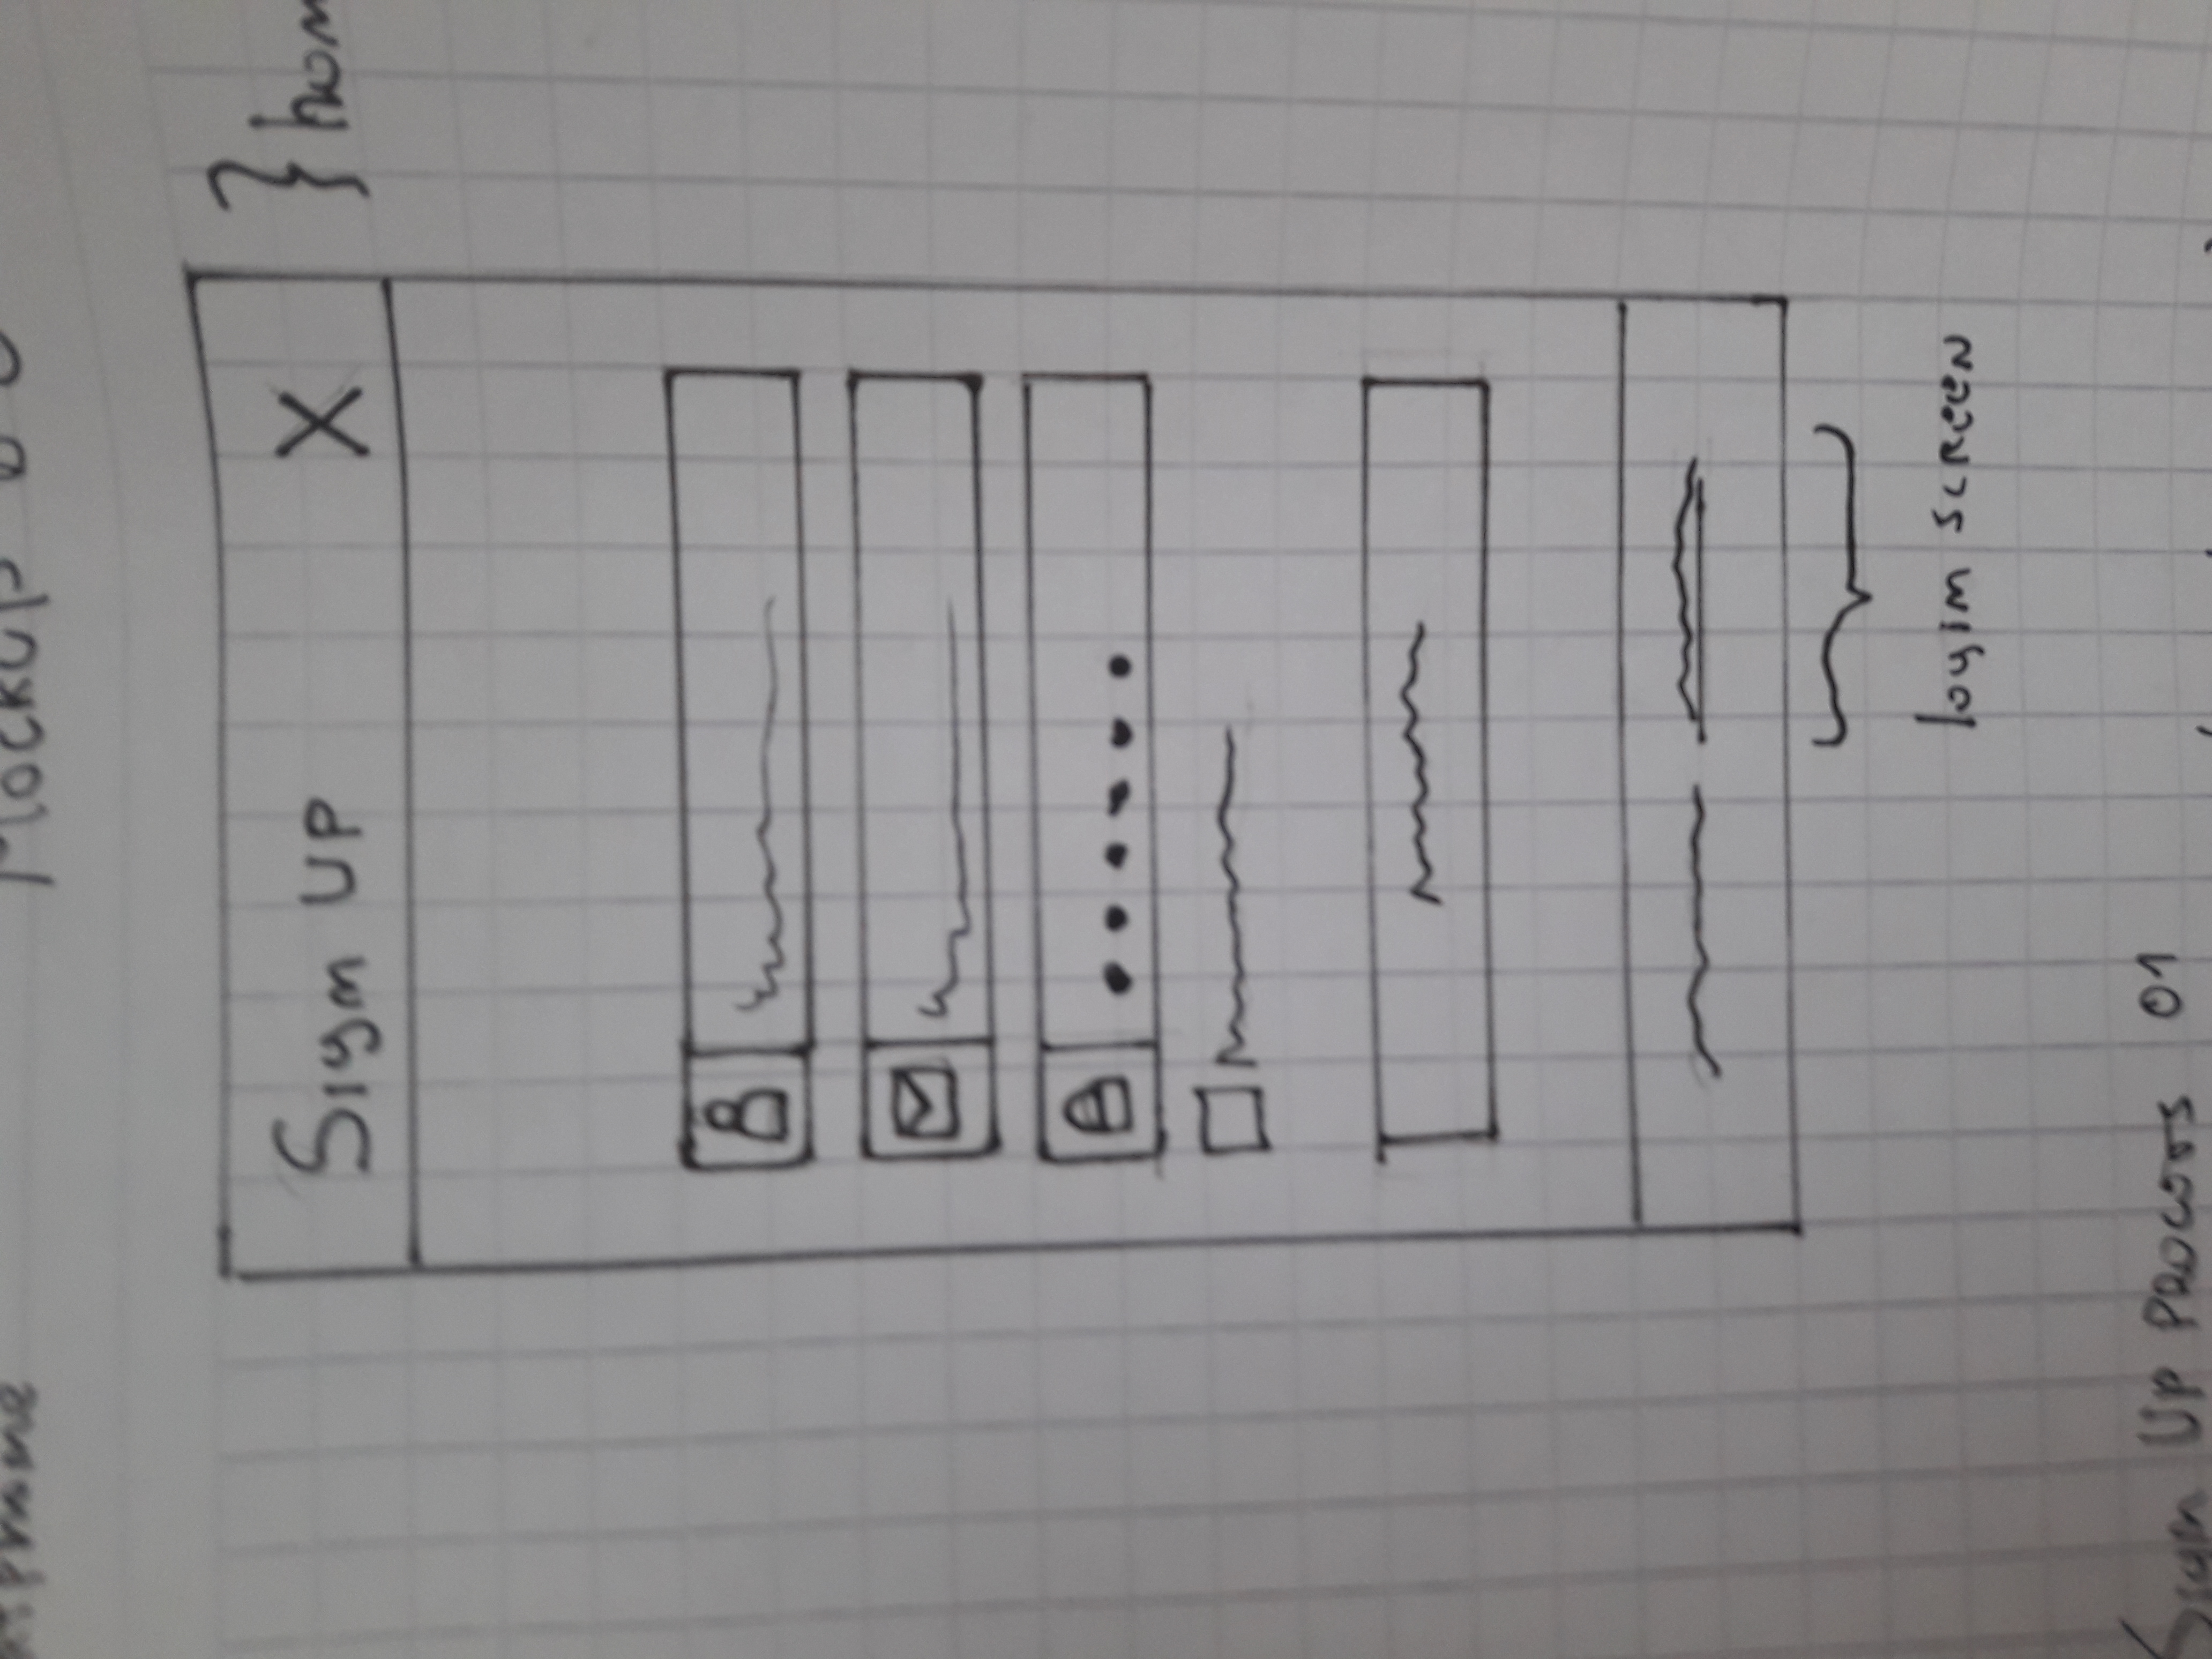 Mockup
Sign UP X
} hom
login screen
Sign Up Process 01